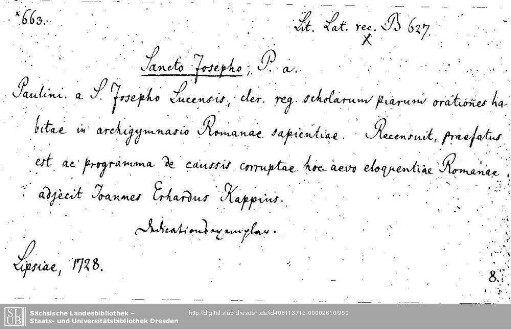 *663.
Lit. Lat. rec. B 627.
x
Sancto Josepho, P. a.
Paulini a S. Josepho Lucensis, cler. reg. scholarum piarum orationes ha-
bitae in archigymnasio Romanae sapientiae. Recensuit, praefatus
est ac programma de caussis corruptae hoc aevo eloquentiae Romanae
adjecit Joannes Erhardus Kappius.
Dedicationsexemplar.
Lipsiae, 1728.
8.
SLUB
Sächsische Landesbibliothek –
Staats- und Universitätsbibliothek Dresden